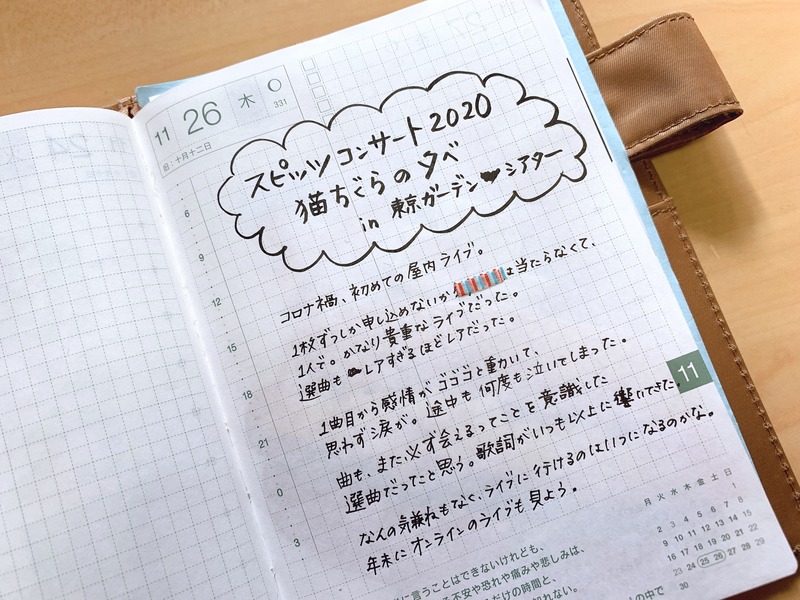 11 26 木
331
旧:十月十二日
スピッツコンサート2020
猫ちぐらの夕べ
in 東京ガーデンシアター
コロナ禍、初めての屋内ライブ。
1枚ずつしか申し込めないか は当たらなくて、
1人で。かなり貴重なライブだった。
選曲も レアすぎるほどレアだった。
1曲目から感情がゴゴゴと動いて、
思わず涙が。途中も何度も泣いてしまった。
曲も、また必ず会えるってことを意識した
選曲だってたと思う。歌詞がいつも以上に響いてきた。
なんの気兼ねもなく、ライブに行けるのはいつになるのかな。
年末にオンラインのライブも見よう。
6
9
12
15
18
21
0
3
11
月 火 水 木 金 土 日
1
2 3 4 5 6 7 8
9 10 11 12 13 14 15
16 17 18 19 20 21 22
23 24 25 26 27 28 29
30
に言うことはできないけれども、
不安や恐れや痛みや悲しみは、
だけの時間と、
の中で